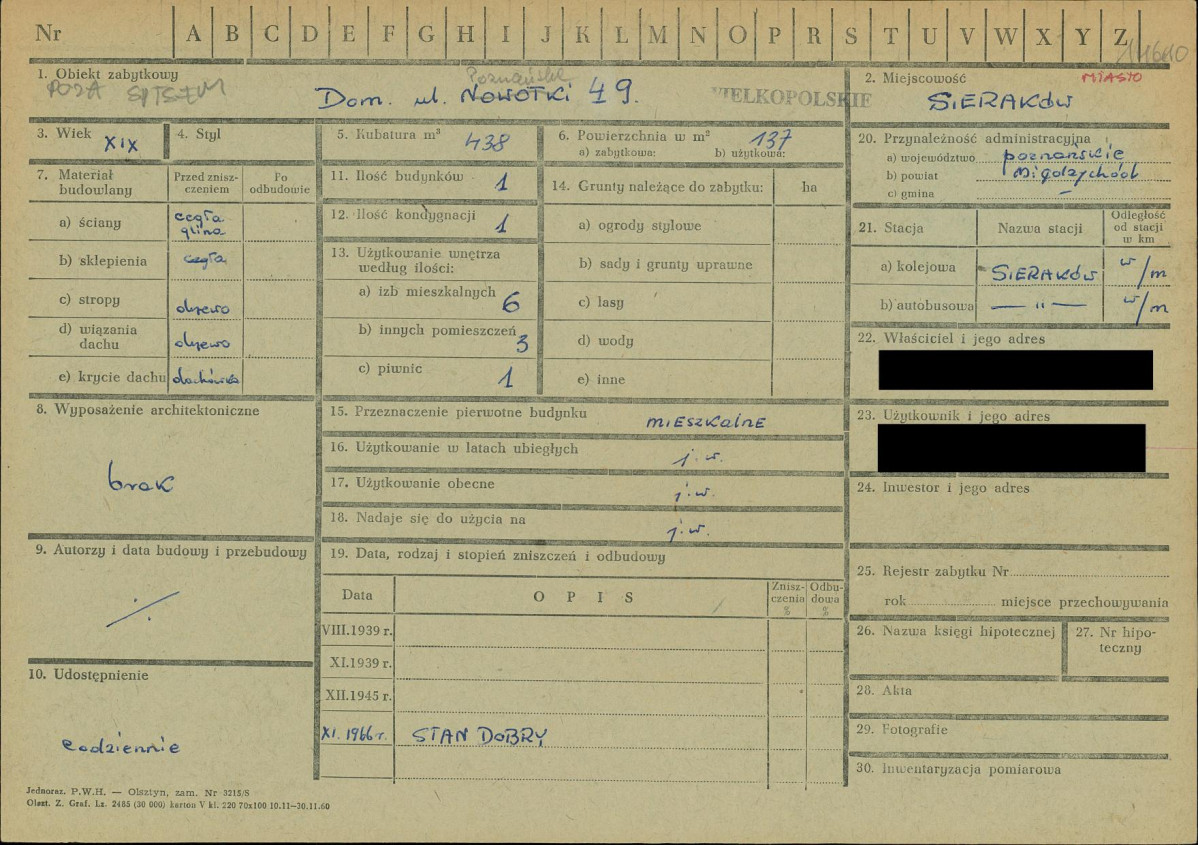 Nr A B C D E F G H I J K L M N O P R S T U V W X Y Z 14610
1. Obiekt zabytkowy
POZA SPISEM
Poznańska
Dom. ul. NOWOTKI 49.
WIELKOPOLSKIE
2. Miejscowość MIASTO
SIERAKÓW
3. Wiek XIX
4. Styl
5. Kubatura m³ 438
6. Powierzchnia w m² 137
a) zabytkowa: b) użytkowa:
20. Przynależność administracyjna
a) województwo poznańskie
b) powiat Międzychód
c) gmina —
7. Materiał budowlany
Przed zniszczeniem
Po odbudowie
a) ściany cegła glina
b) sklepienia cegła
c) stropy drzewo
d) wiązania dachu drzewo
e) krycie dachu dachówka
11. Ilość budynków 1
12. Ilość kondygnacji 1
13. Użytkowanie wnętrza
według ilości:
a) izb mieszkalnych 6
b) innych pomieszczeń 3
c) piwnic 1
14. Grunty należące do zabytku: ha
a) ogrody stylowe
b) sady i grunty uprawne
c) lasy
d) wody
e) inne
21. Stacja
Nazwa stacji
Odległość od stacji w km
a) kolejowa SIERAKÓW w/m
b) autobusowa — " — w/m
22. Właściciel i jego adres
23. Użytkownik i jego adres
24. Inwestor i jego adres
8. Wyposażenie architektoniczne
brak
15. Przeznaczenie pierwotne budynku mieszkalne
16. Użytkowanie w latach ubiegłych j.w.
17. Użytkowanie obecne j.w.
18. Nadaje się do użycia na j.w.
9. Autorzy i data budowy i przebudowy
./.
19. Data, rodzaj i stopień zniszczeń i odbudowy
Data
OPIS
Zniszczenia %
Odbudowa %
VIII.1939 r.
XI.1939 r.
XII.1945 r.
XI.1966 r. STAN DOBRY
10. Udostępnienie
codziennie
25. Rejestr zabytku Nr
rok miejsce przechowywania
26. Nazwa księgi hipotecznej
27. Nr hipoteczny
28. Akta
29. Fotografie
30. Inwentaryzacja pomiarowa
Jednoraz. P.W.H. — Olsztyn, zam. Nr 3215/S
Olszt. Z. Graf. Lz. 2485 (30 000) karton V kl. 220 70x100 10.11—30.11.60